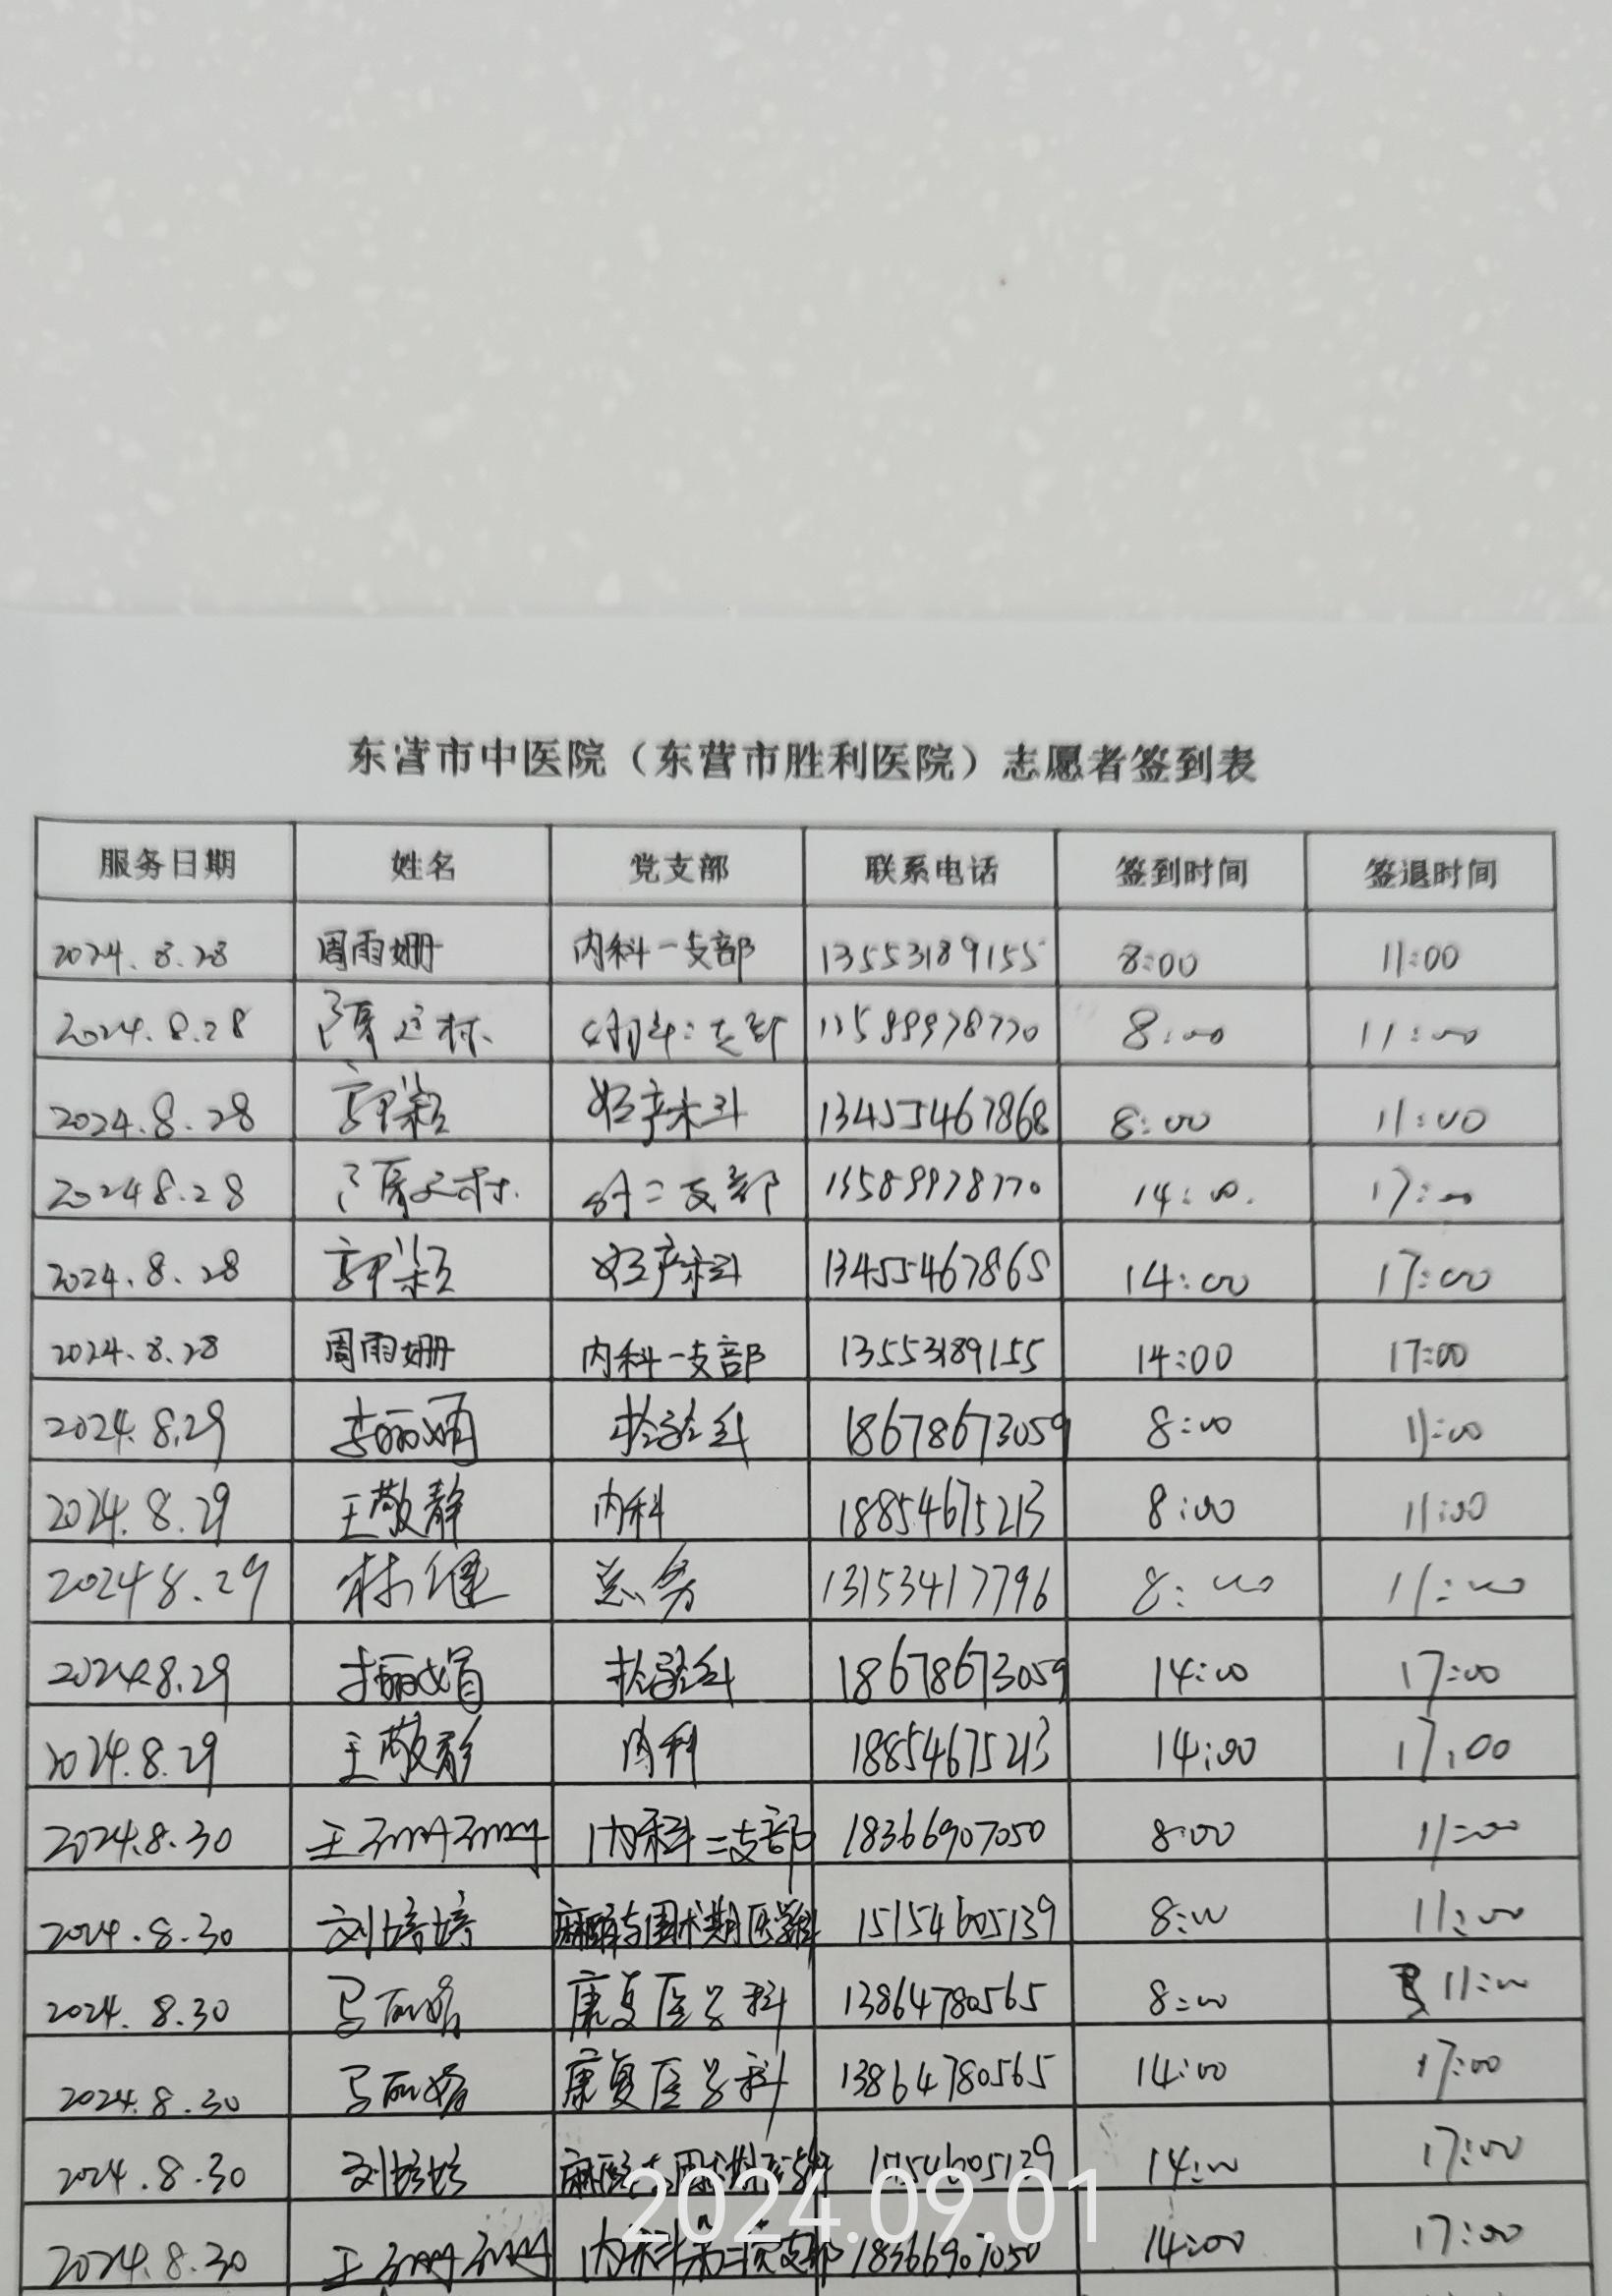 东营市中医院（东营市胜利医院）志愿者签到表
服务日期 姓名 党支部 联系电话 签到时间 签退时间
2024.8.28 周雨姗 内科一支部 13553189155 8:00 11:00
2024.8.28 支部 8:00 11:00
2024.8.28 郭颖 妇产科 13455467868 8:00 11:00
2024.8.28 二支部 13589978770 14:00 17:00
2024.8.28 郭颖 妇产科 13455467868 14:00 17:00
2024.8.28 周雨姗 内科一支部 13553189155 14:00 17:00
2024.8.29 李丽娟 检验科 18678673059 8:00 11:00
2024.8.29 王敬静 内科 18854675213 8:00 11:00
2024.8.29 林健 总务 13153417796 8:00 11:00
2024.8.29 李丽娟 检验科 18678673059 14:00 17:00
2024.8.29 王敬静 内科 18854675213 14:00 17:00
2024.8.30 王珊珊 内科二支部 18366907050 8:00 11:00
2024.8.30 刘培培 麻醉与围术期医学科 15154605139 8:00 11:00
2024.8.30 马丽 康复医学科 13864780565 8:00 11:00
2024.8.30 马丽 康复医学科 13864780565 14:00 17:00
2024.8.30 刘培培 14:00 17:00
2024.8.30 王珊珊 内科第二党支部 18366907050 14:00 17:00
2024.09.01